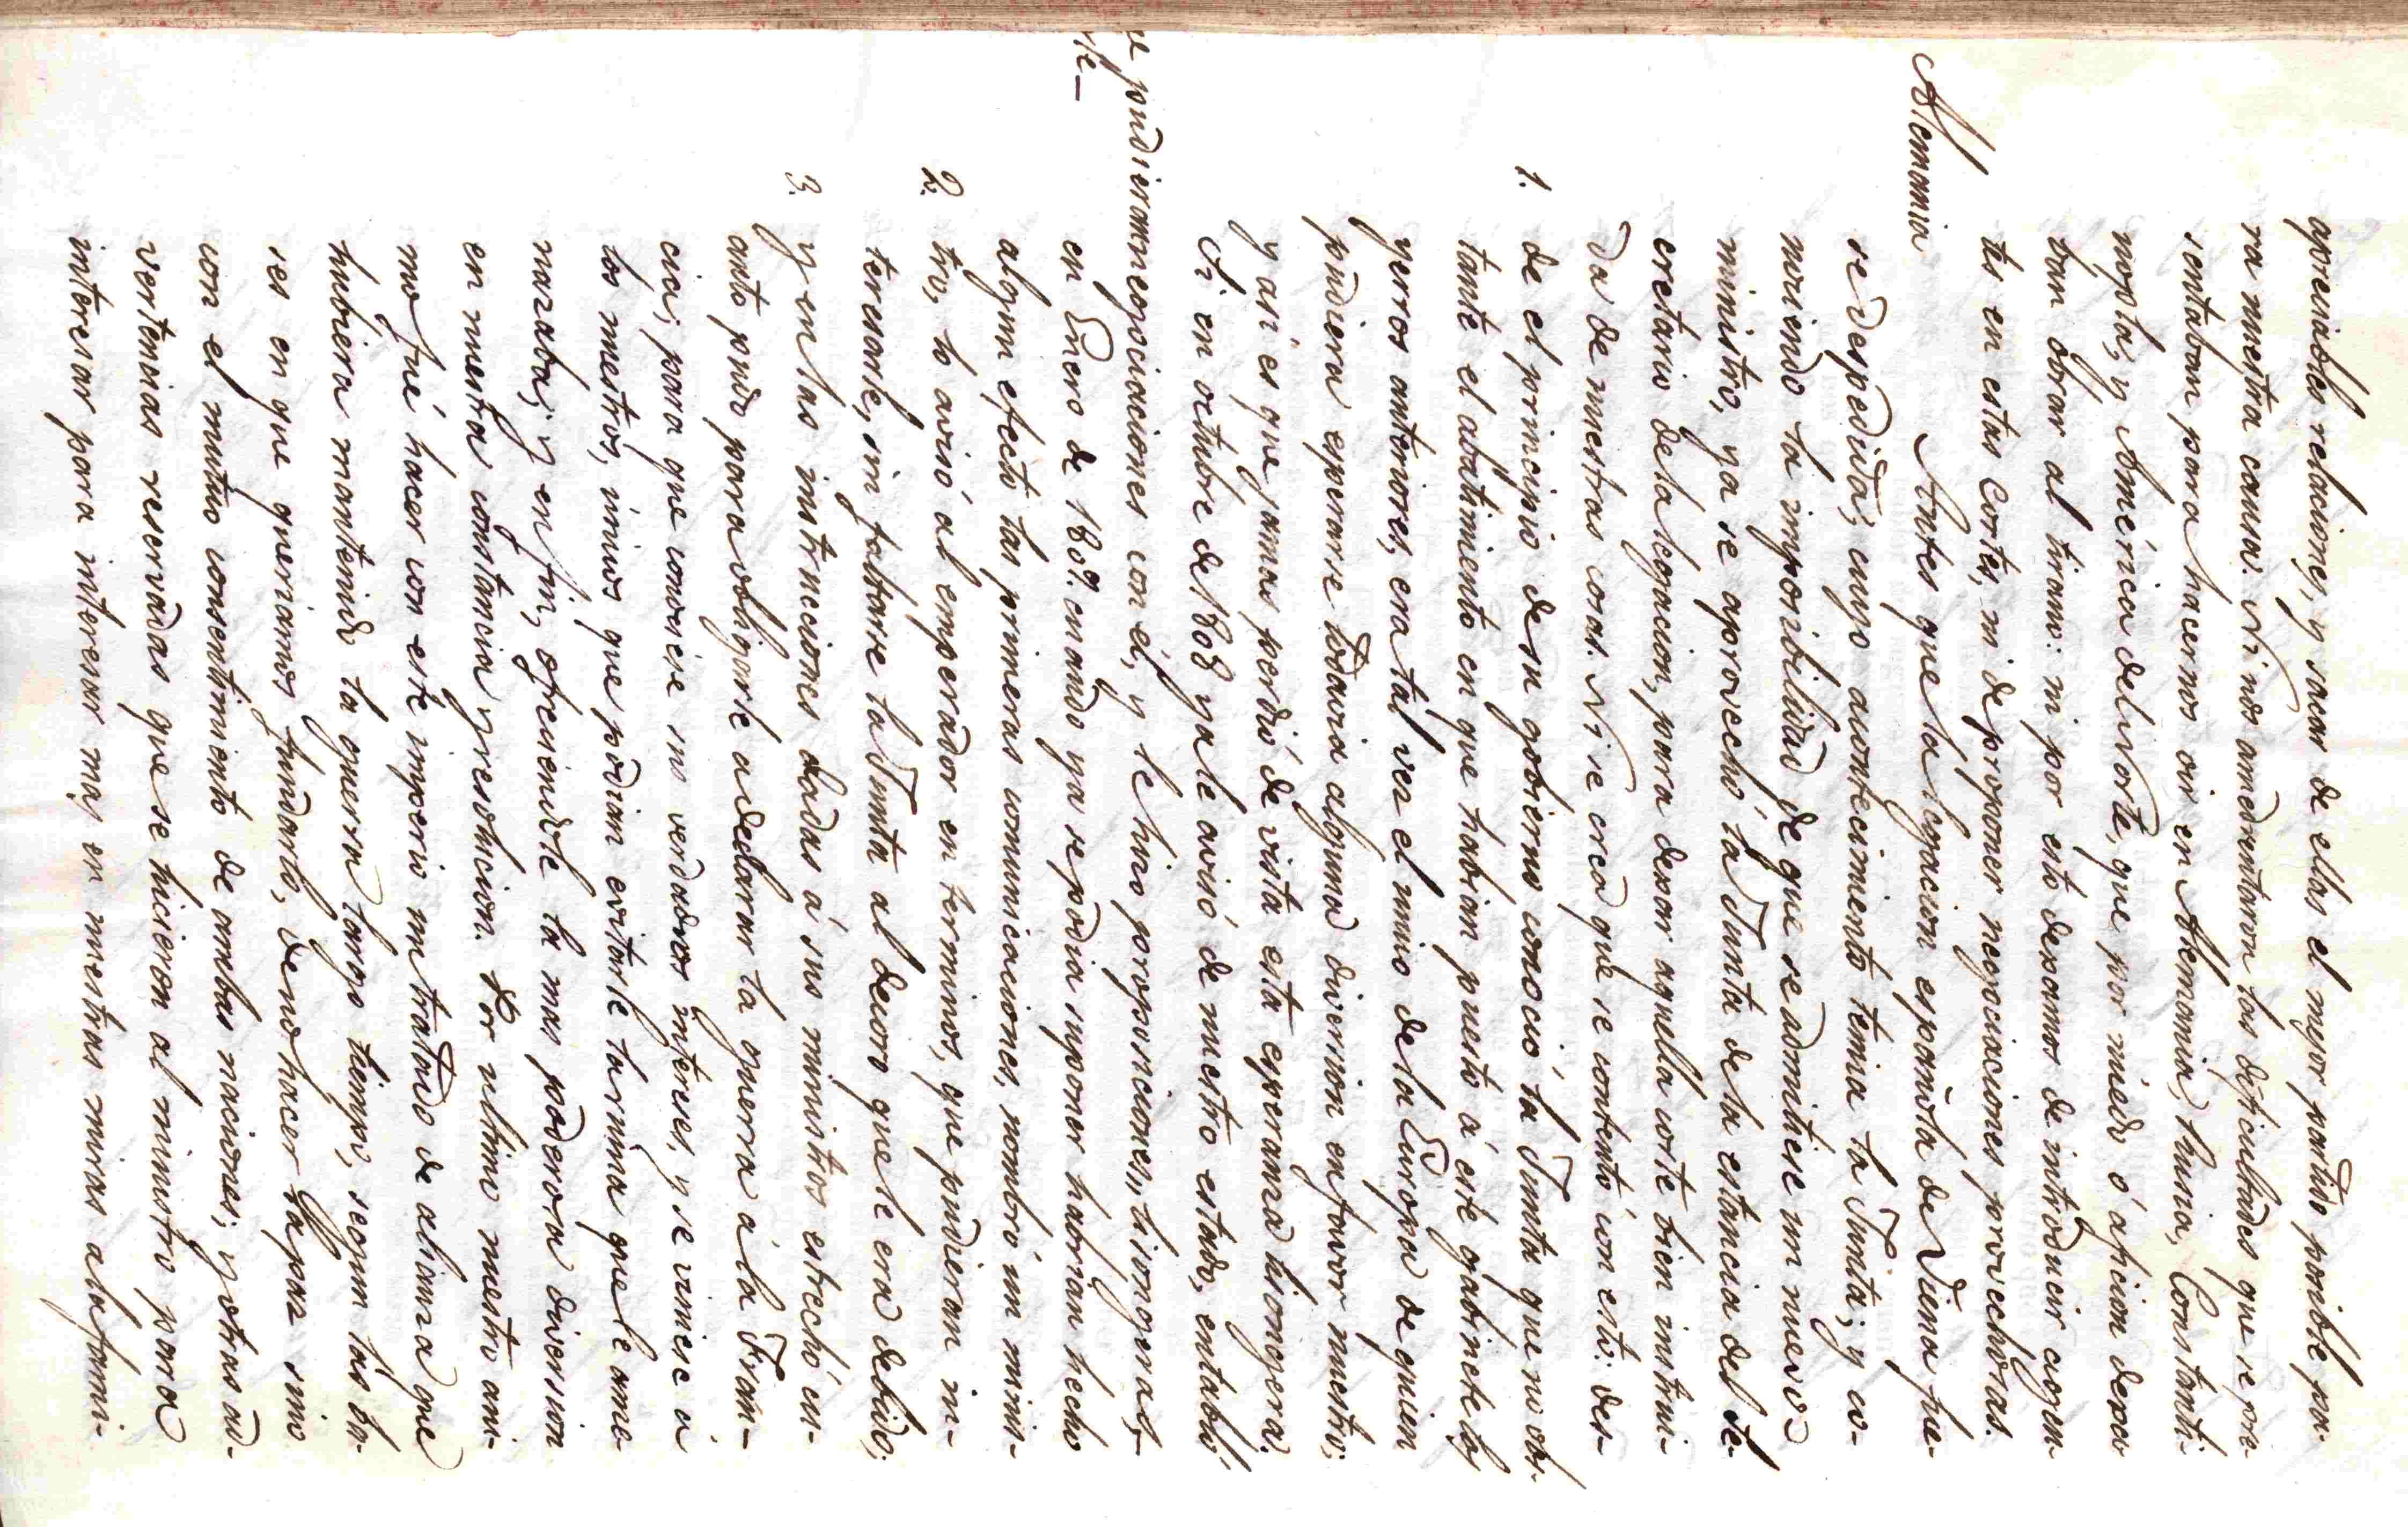 apreciables relaciones, y sacar de ellas el mejor partido posible pa-
ra nuestra causa. Ni nos amedrentaron las dificultades que se pre-
sentaban para hacernos oir en Alemania, Rusia, Constanti-
nopla, y América del Norte, que, por miedo ó aficion dexa-
ban obrar al tirano: ni por esto dexamos de introducir agen-
tes en estas Cortes, ni de proponer negociaciones provechosas.
Alemania
Antes que la legacion española de Viena fue-
se despedida, cuyo acontecimiento temia la Junta; y co-
nociendo la imposibilidad de que se admitiese un nuevo
ministro, ya se aprovechó la Junta de la estancia del Se-
cretario de la legacion, para dexar aquella corte bien instrui-
da de nuestras cosas. Ni se crea que se contentó con esto: des-
1. de el principio de su gobierno conoció la Junta que no obs-
tante el abatimiento en que habian puesto á este gabinete los
yerros anteriores, era tal vez el unico de la Europa de quien
pudiera esperarse todavia alguna diversion en favor nuestro;
y asi es que jamas perdió de vista esta esperanza lisongera.
Asi en octubre de 1808 ya le avisó de nuestro estado, entabló
negociaciones con él, y le hizo proposiciones lisongeras,
que pudieran
en Enero de 1809. cuando ya se podia suponer habrian hecho
algun efecto las primeras comunicaciones, nombró un minis-
2. tro, lo avisó al emperador en terminos, que pudieran in-
teresarle, sin faltarse la Junta al decoro que le era debido;
3. y en las instrucciones dadas á sus ministros estrechó cu-
anto pudo para obligarle a declarar la guerra á la Fran-
cia; para que conociese sus verdaderos intereses, y se uniese á
los nuestros, unicos que podian evitarle la ruina que le ame-
nazaba; y en fin, ofreciendole la mas poderosa diversion
en nuestra constancia y resolucion. Por ultimo nuestro ani-
mo fué hacer con este imperio un tratado de alianza que
hubiera mantenido la guerra largo tiempo, segun las ba-
ses en que queriamos fundarlo, de no hacer la paz sino
con el mutuo consentimiento de ambas naciones; y otras ad-
vertencias reservadas que se hicieron al ministro para
interesar mas en nuestras miras a la fami-